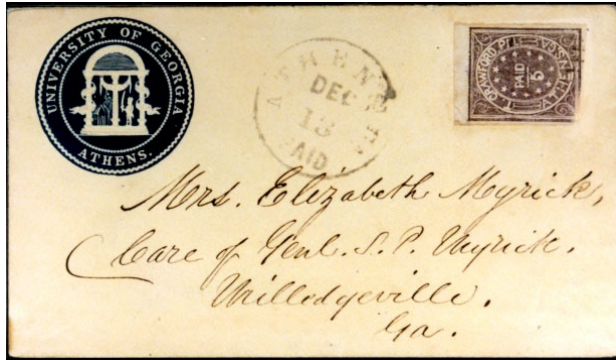 UNIVERSITY OF GEORGIA
ATHENS.
ATHENS GA
DEC
13
PAID
T. CRAWFORD P.M. ATHENS, GA.
PAID
5
Mrs. Elizabeth Myrick,
Care of Genl. S. P. Myrick.
Milledgeville.
Ga.